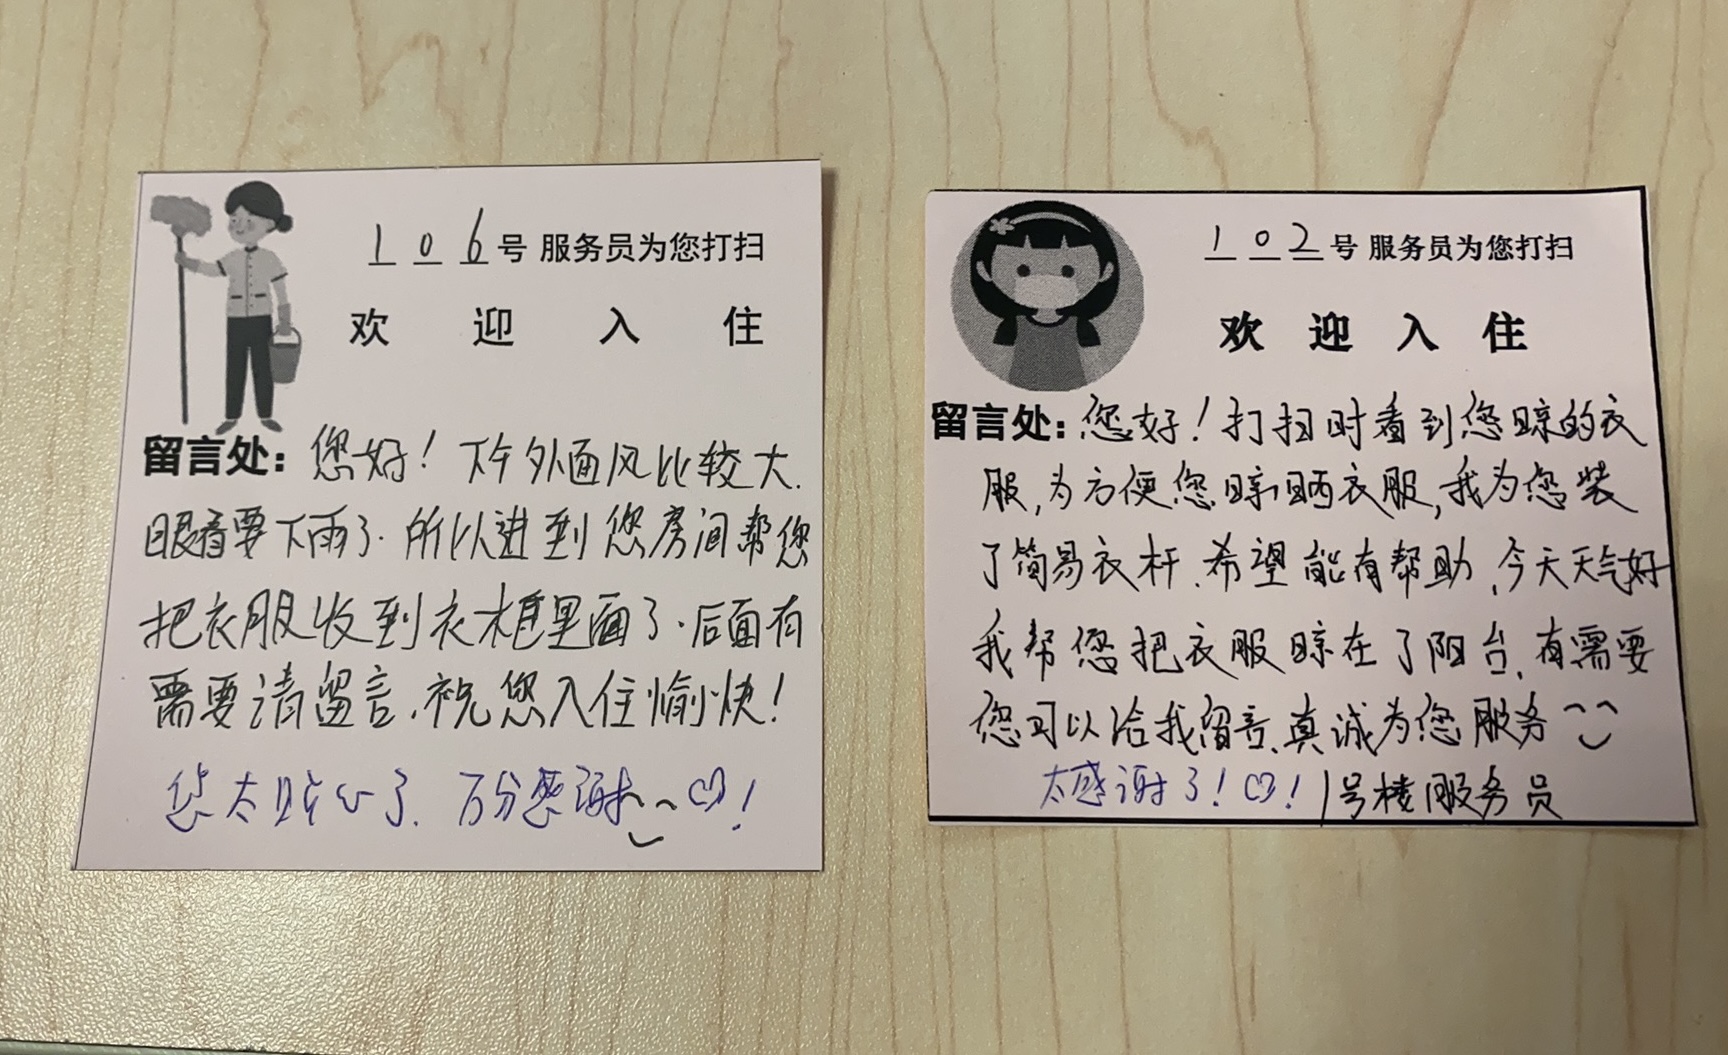 106号 服务员为您打扫
欢迎入住
留言处：您好！下午外面风比较大.
眼看要下雨了.所以进到您房间帮您
把衣服收到衣柜里面了.后面有
需要请留言.祝您入住愉快！
您太贴心了.万分感谢 ！
102号 服务员为您打扫
欢迎入住
留言处：您好！打扫时看到您晾的衣
服,为方便您晾晒衣服,我为您装
了简易衣杆.希望能有帮助.今天天气好
我帮您把衣服晾在了阳台.有需要
您可以给我留言.真诚为您服务
太感谢了！♡！1号楼服务员